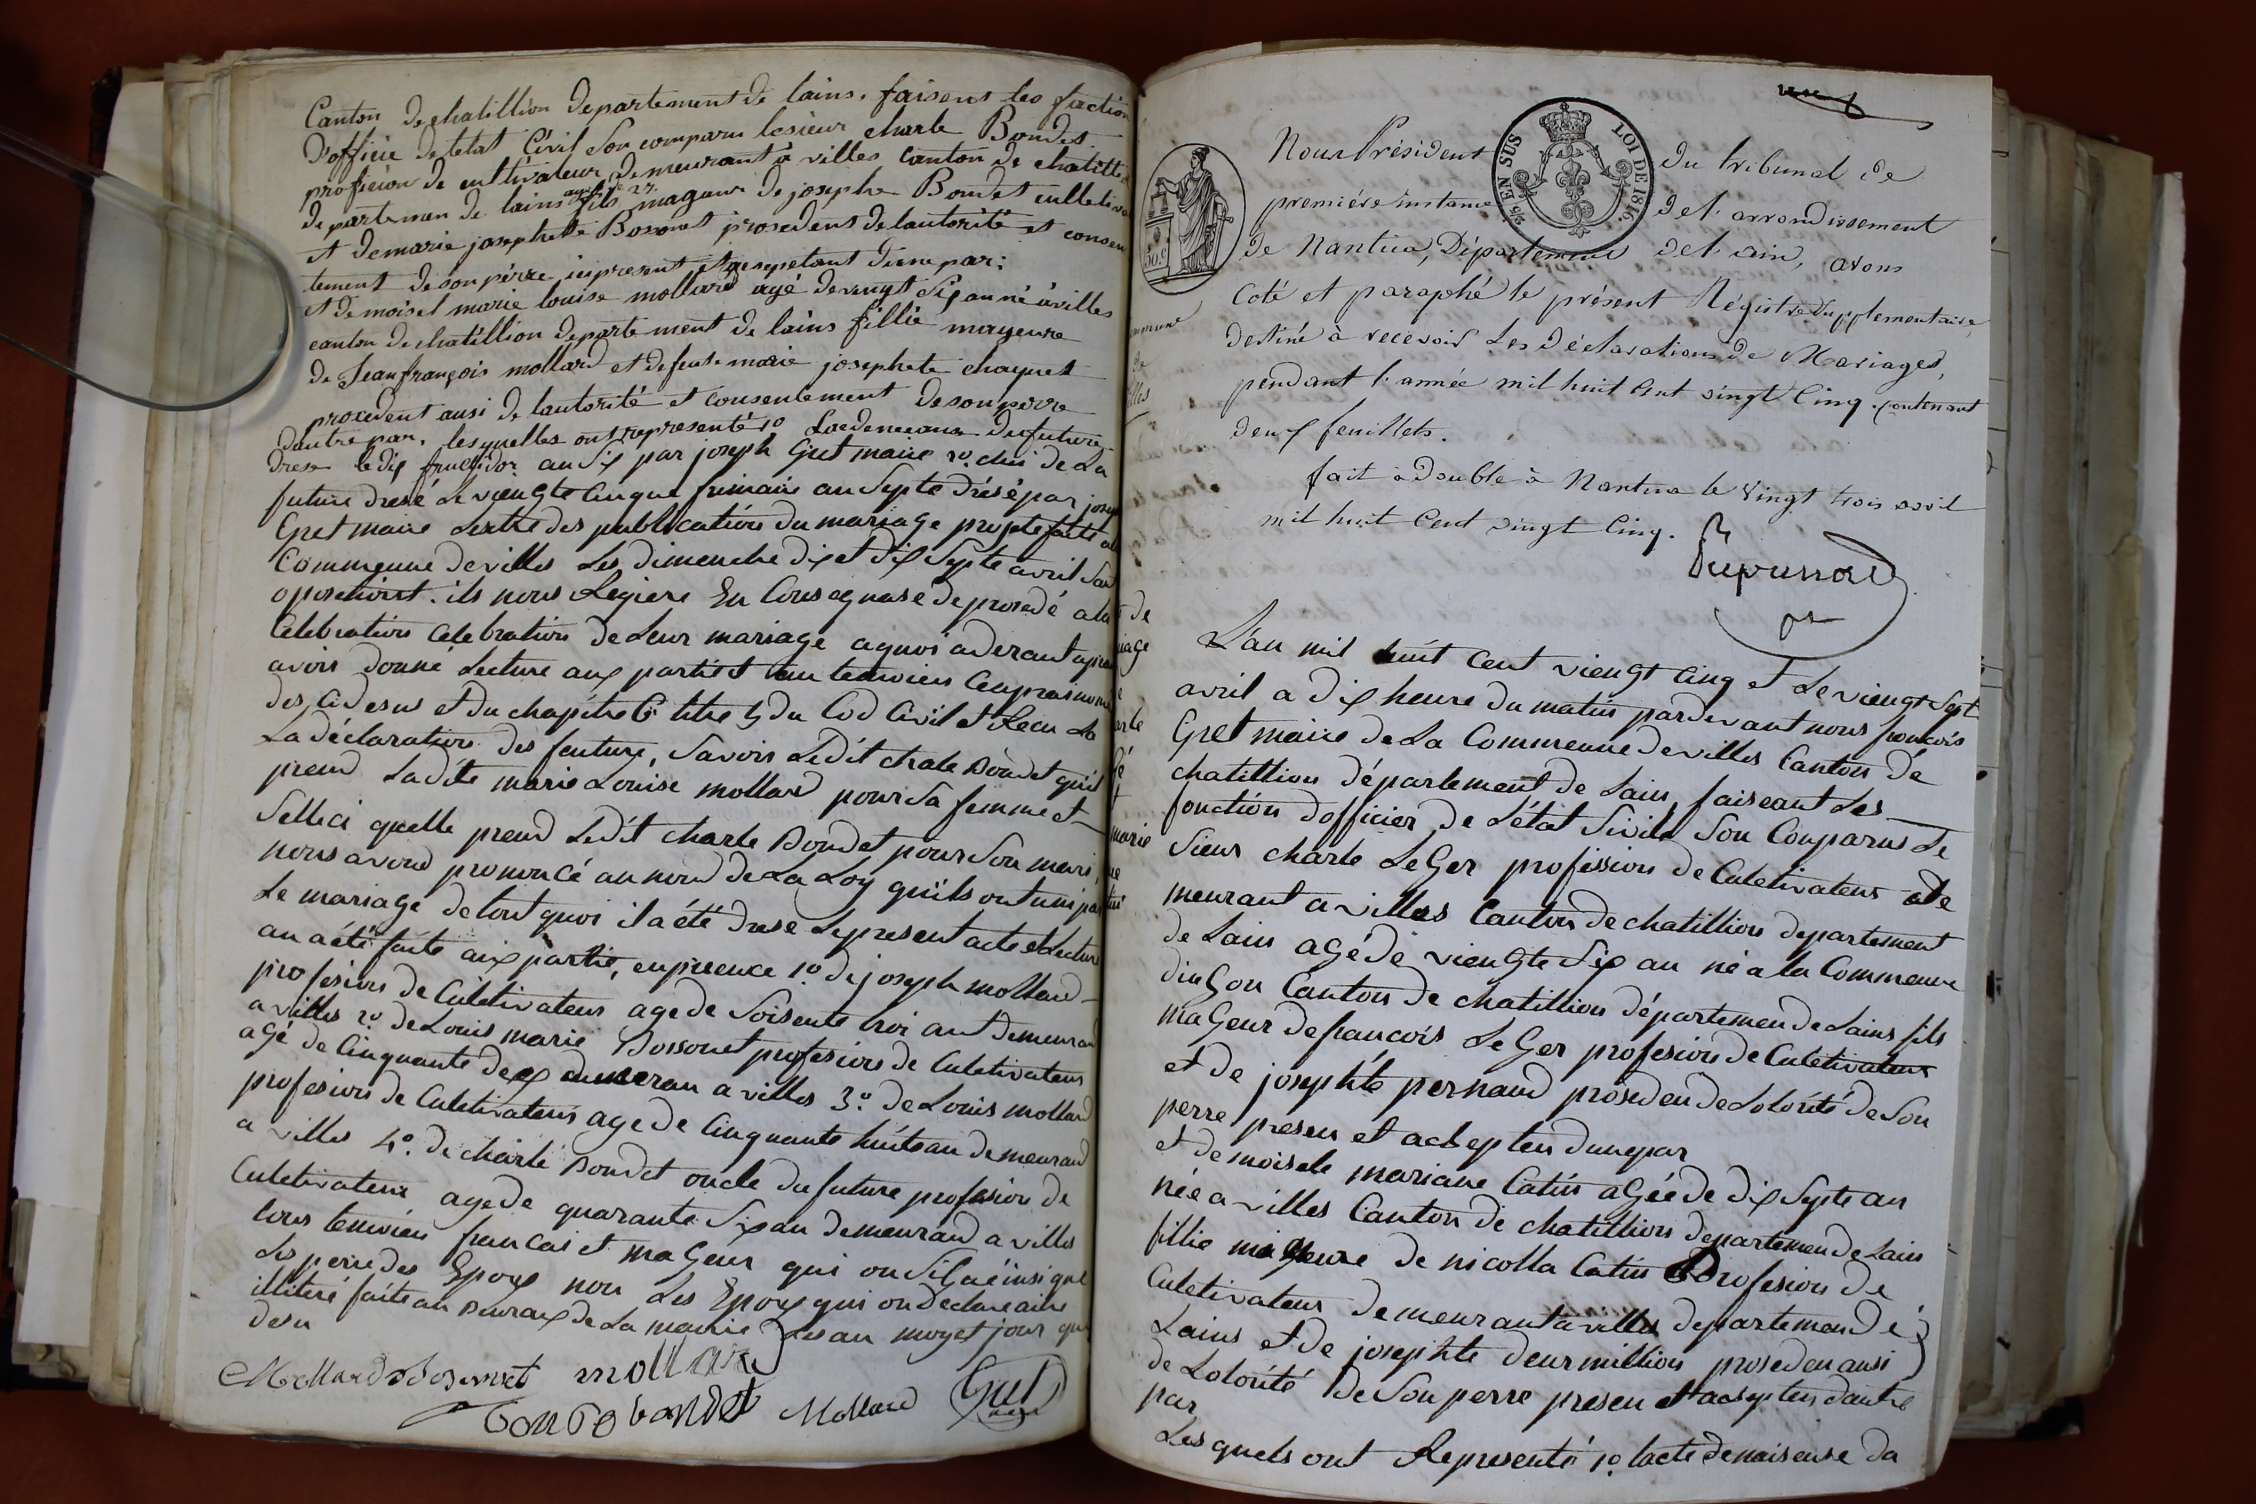 Canton de chatillion departement de lains. faisens les faction
D'officie de letat Civil Son comparu lesieur charle Bondet
profision de cultivateur demeurant a villes canton de chatillio
departemen de lains fils mageur de josephe Bondet cultiva
age de 27.
et demarie josephete Bosonet prosedent delautorité et consen
tement de son pérre ici present et acseptant dune par;
et demoisel marie louise mollard agé devingt Sij an né a villes
canton de chatillion departement de lains fillie mageure
de Jean françois mollard et defeute marie josephete chaquet
procedent ausi de lautorité et consentement deson perre
dautre par. lesquelles ont representé 1o du future
drese le dix fructidor an Six par joseph Gret maire 2o. de La
future dresé Le viengte Cinque frimaire an Septe drésé par josep
Gret maire Lextre des publication du mariage projeté faite a la
Commeune de villes Les dimenche dix et dix Septe avril San
oposetion. ils nous Regiere En Consequase de prosedé a la
Celebration Celebration de Leur mariage aquoi aderant apres
avoir donné Lecture aux partis et au temoiens
des cidesus et du chapitre 6 titre 5 du Cod Civil et Recu La
La déclaration des feuture, Savoir Ledit charle Bondet qu'il
prend Ladite marie Louise mollard pour Sa femme et
Selleci quelle prend Ledit charle Bondet pour Son mari,
nous avond prononcé au nond de La Loy quils ont uni par
Le mariage de tout quoi il a été drese Lepresent acte et Lecture
an a été faite aux partie, enpresence 1o. de joseph mollard
profesion de Culetivateur age de Soisente troi ant demeurand
a villes 2o. de Louis marie Bossonet profesion de Culetivateur
agé de Cinquante deux demeuran a villes 3o. de Louis mollard
profesion de Culetivateur age de Cinquante huite an demeurand
a villes 4o. de charle Bondet oncle du future profesion de
Culetivateur age de quarante Six an demeurand a villes
tous temoien francais et mageur qui on Signé insi que
Les perre des Epoux non Les Epoux qui on declare aitre
illiteré faite au Bureaux de La mairie Les an moy et jour que
desu
Mollard Bosonnet mollard
bondet Mollard Gret
Nous Président du tribunal de
première instance de l'arrondissement
de Nantua, Département de l'ain, avons
Coté et paraphé le présent Régistre Supplementaire
destiné à recevoir Les déclarations de Mariages,
pendant l'année mil huit Cent vingt Cinq. Contenant
deux feuillets.
fait à double à Nantua le vingt trois avril
mil huit Cent vingt Cinq.
5/6 EN SUS
LOI DE 1816.
L'an mil huit Cent viengt Cinq et Le viengt Sept
avril a dix heure du matin pardevant nous francois
Gret maire de La Commeune de villes Canton dé
chatillion département de Lain, faiseant Les
fonction dofficier de L'état Sivile Son Comparus Le
Sieur charle LeGer profission de Culetivateur de
meurant a villes Canton de chatillion departement
de Lain agé de viengte Six an né a la Commeune
dinGon Canton de chatillion département de Lains fils
maGeur de francois LeGer profesion de Culetivateur
et de josephte pernaud prosedeu de Lotorité de Son
perre presen et acksepten dunepar
et demoisele mariane Catin aGée de dix Septe an
née a villes Canton de chatillion departemen de Lain
fillie maGeure de nicolla Catin Profesion de
Culetivateur demeurant a villes departemand de
Lains et de josephte deurmillion prosedeu ausi
de Lotorité de Son perre presen et acksepten dautre
par
Lesquels ont Representé 1o. lacte de naiseuse du